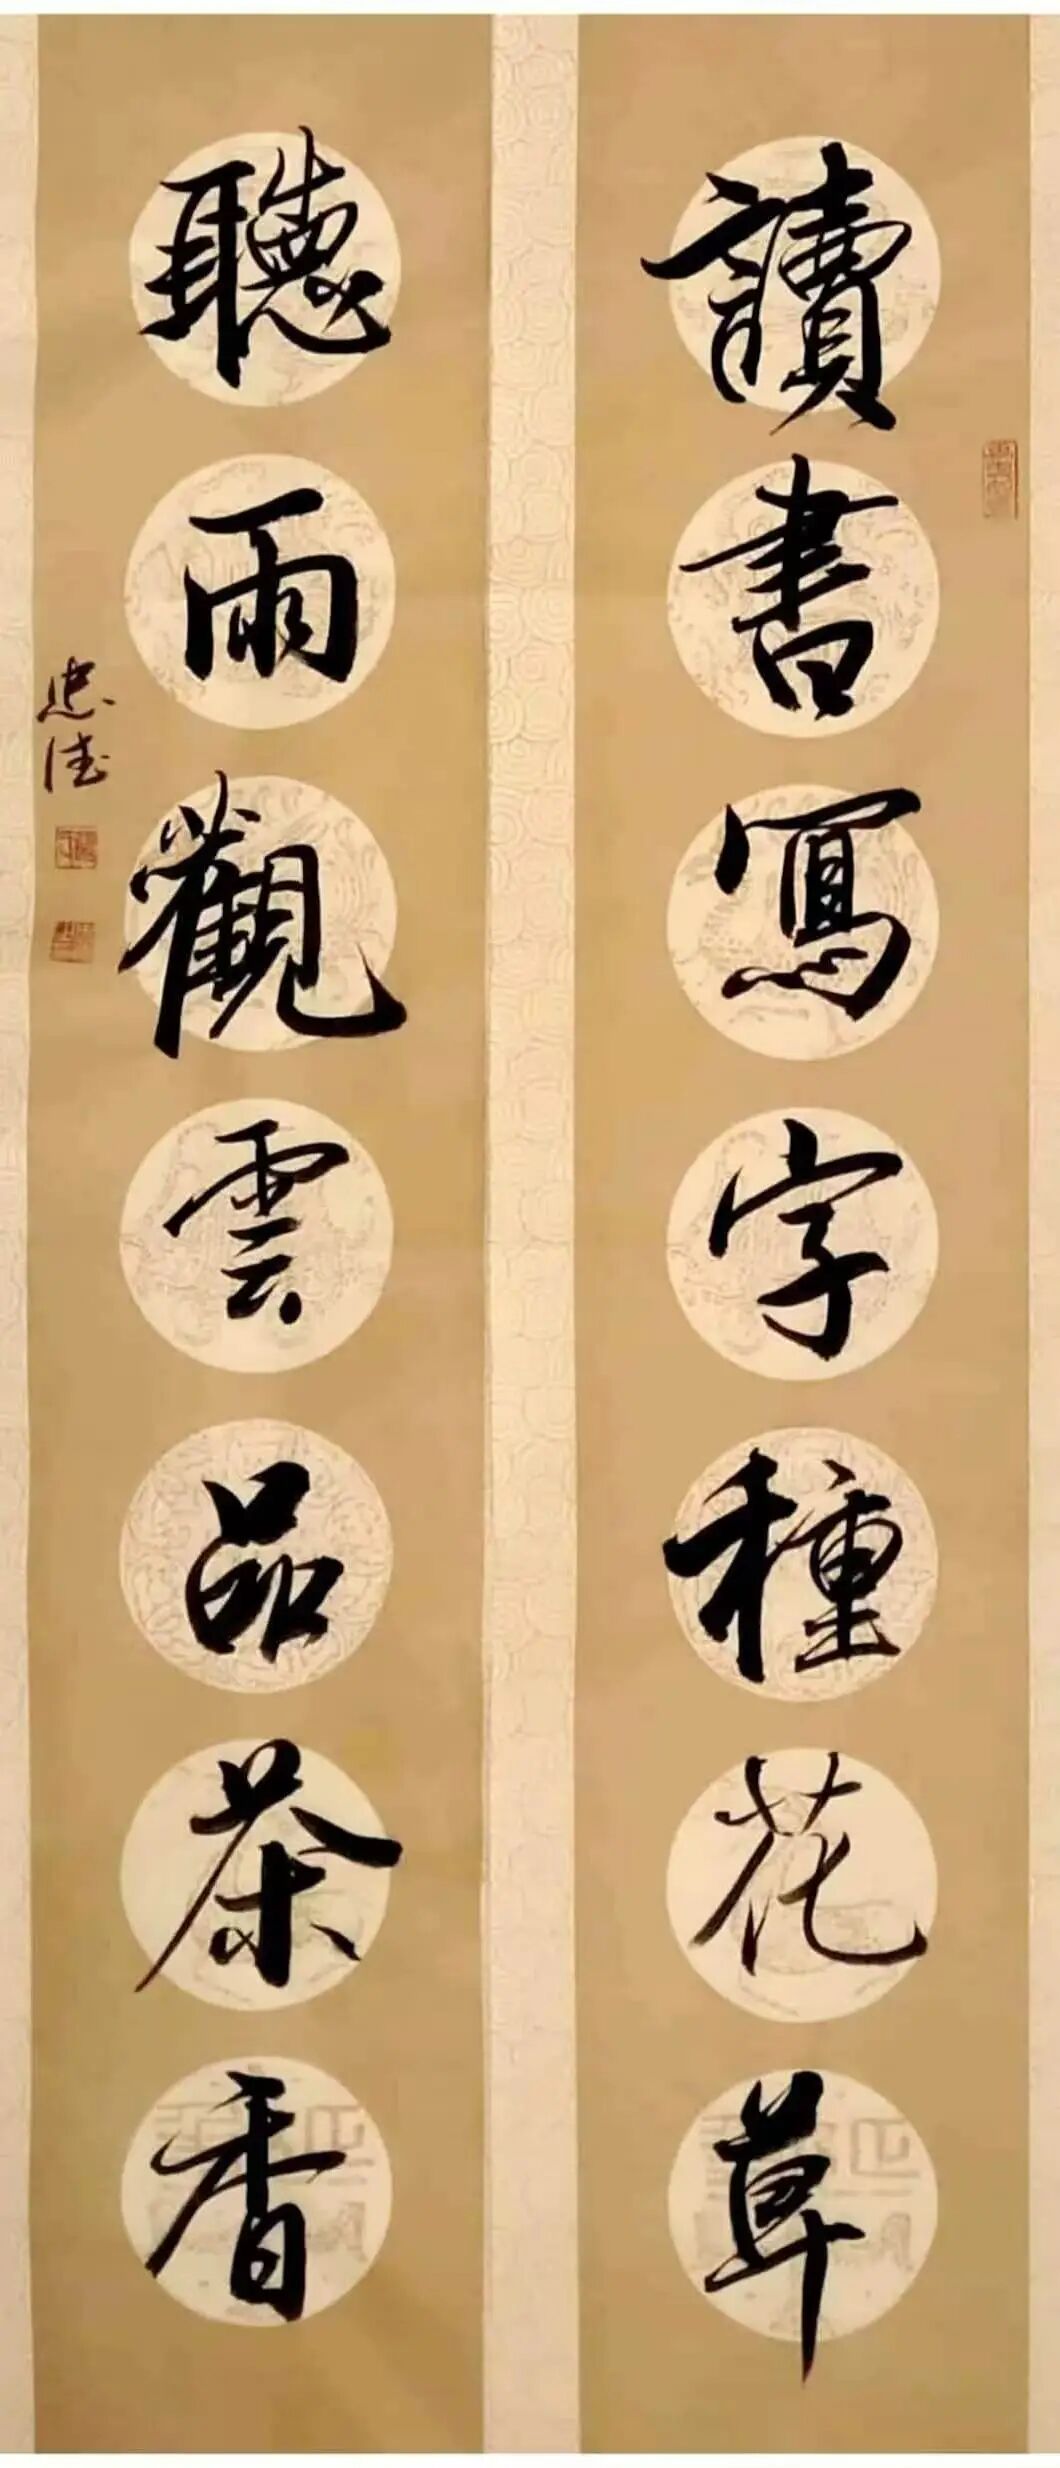 讀書寫字種花草
聽雨觀雲品茶香
忠法